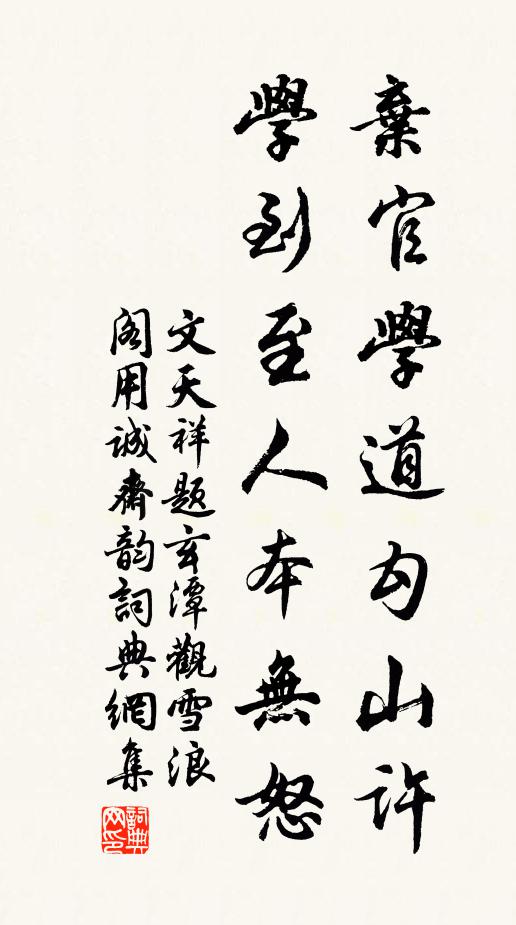 棄官學道勾山許
學到至人本無怒
文天祥題玄潭觀雪浪
阁用誠齋韵詞典網集
詞典网印